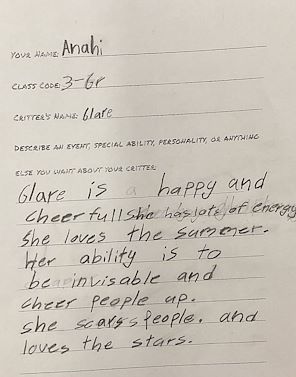 YOUR NAME: Anahi
CLASS CODE: 3-Gr
CRITTER'S NAME: Glare
DESCRIBE AN EVENT, SPECIAL ABILITY, PERSONALITY, OR ANYTHING
ELSE YOU WANT ABOUT YOUR CRITTER:
Glare is a happy and
cheerfull she has lots of energy
she loves the summer.
Her ability is to
be invisable and
cheer people up.
she scares people. and
loves the stars.